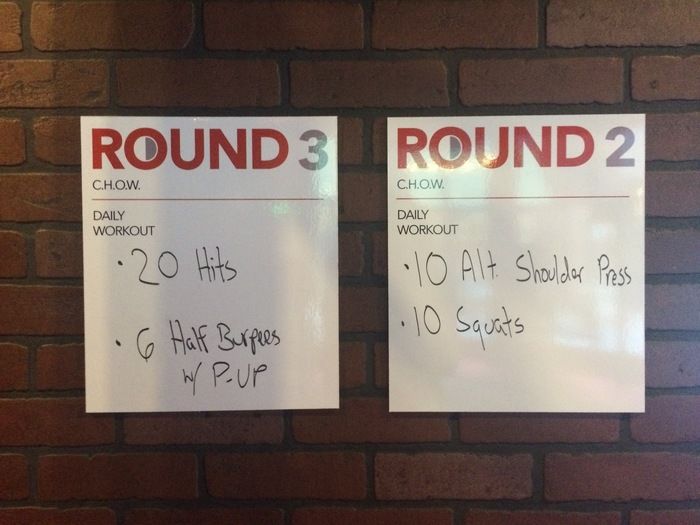 ROUND 3
C.H.O.W.
DAILY
WORKOUT
· 20 Hits
· 6 Half Burpees
w/ P-UP
ROUND 2
C.H.O.W.
DAILY
WORKOUT
· 10 Alt. Shoulder Press
· 10 Squats